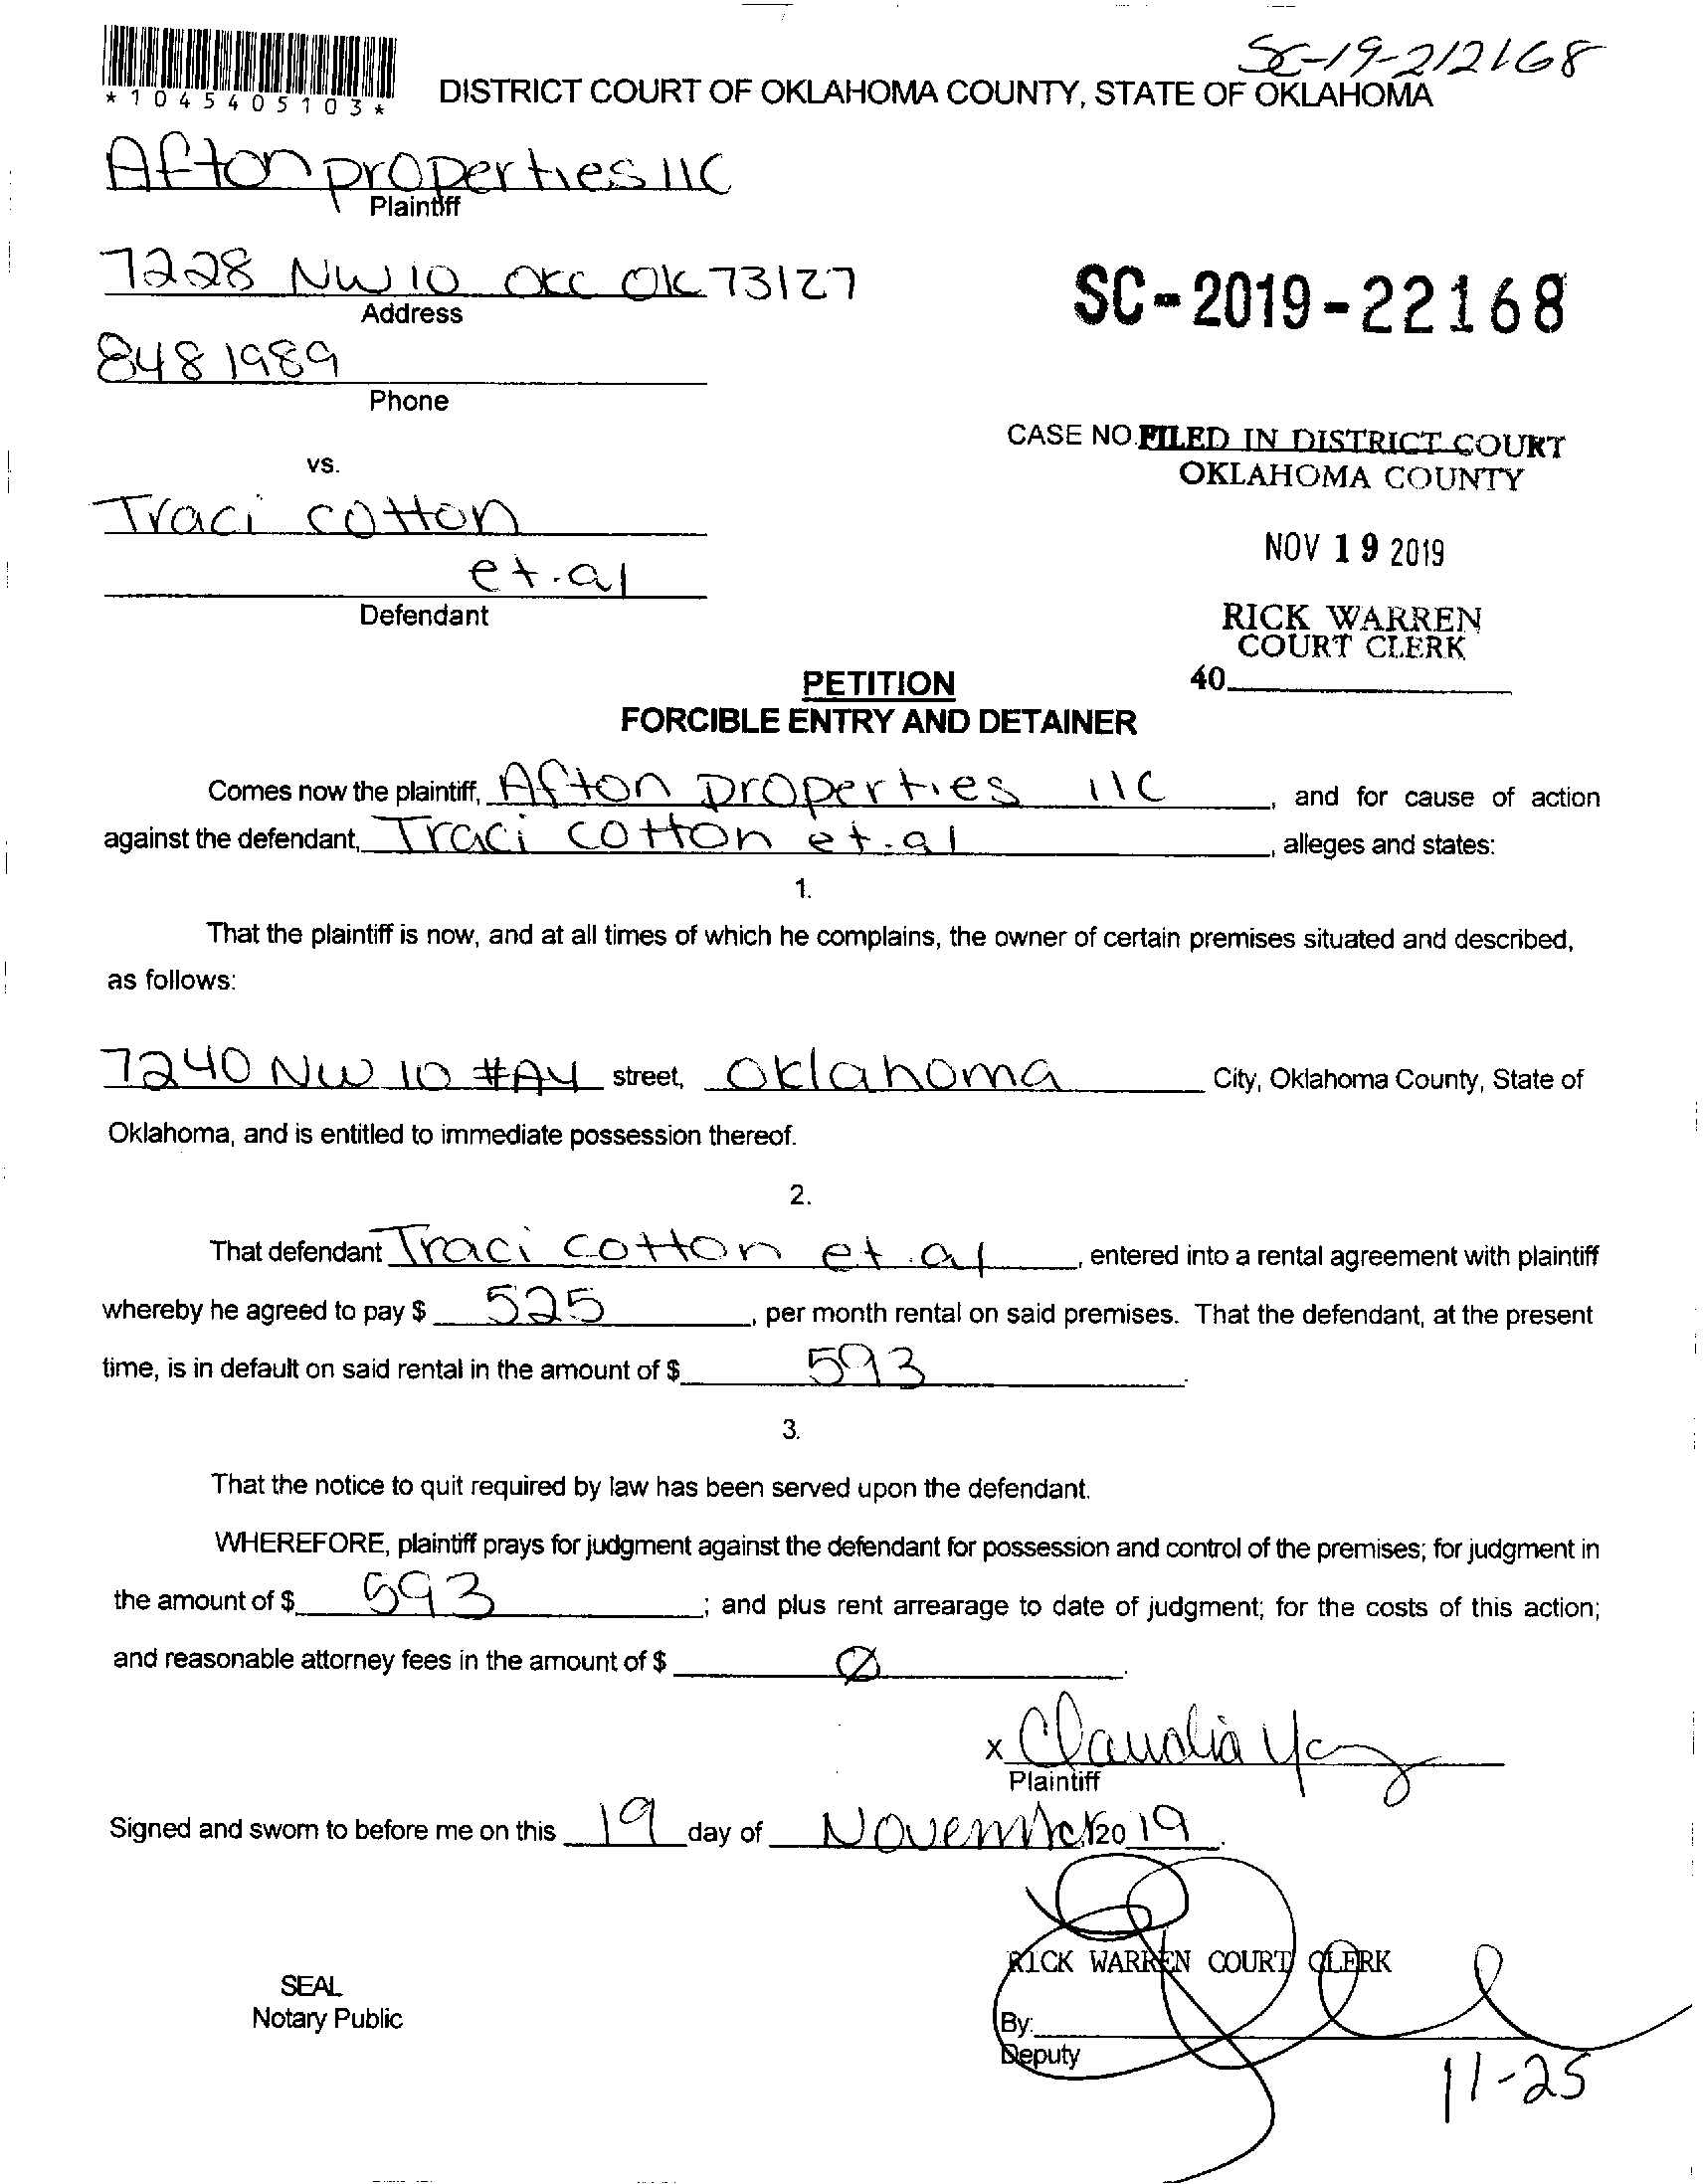 SC-19-212168
*1045405103*
DISTRICT COURT OF OKLAHOMA COUNTY, STATE OF OKLAHOMA
Afton properties llC
Plaintiff
7228 NW 10 OKC OK 73127
Address
SC-2019-22168
848 1989
Phone
CASE NO. FILED IN DISTRICT COURT
OKLAHOMA COUNTY
vs.
Traci cotton
NOV 19 2019
et.al
Defendant
RICK WARREN
COURT CLERK
40
PETITION
FORCIBLE ENTRY AND DETAINER
Comes now the plaintiff, Afton properties llC, and for cause of action
against the defendant, Traci cotton et.al, alleges and states:
1.
That the plaintiff is now, and at all times of which he complains, the owner of certain premises situated and described,
as follows:
7240 NW 10 #A4 street, Oklahoma City, Oklahoma County, State of
Oklahoma, and is entitled to immediate possession thereof.
2.
That defendant Traci cotton et.al, entered into a rental agreement with plaintiff
whereby he agreed to pay $ 525, per month rental on said premises. That the defendant, at the present
time, is in default on said rental in the amount of $ 593.
3.
That the notice to quit required by law has been served upon the defendant.
WHEREFORE, plaintiff prays for judgment against the defendant for possession and control of the premises; for judgment in
the amount of $ 593; and plus rent arrearage to date of judgment; for the costs of this action;
and reasonable attorney fees in the amount of $ Ø.
x Claudia
Plaintiff
Signed and sworn to before me on this 19 day of November, 20 19.
RICK WARREN COURT CLERK
SEAL
Notary Public
By:
Deputy
11-25